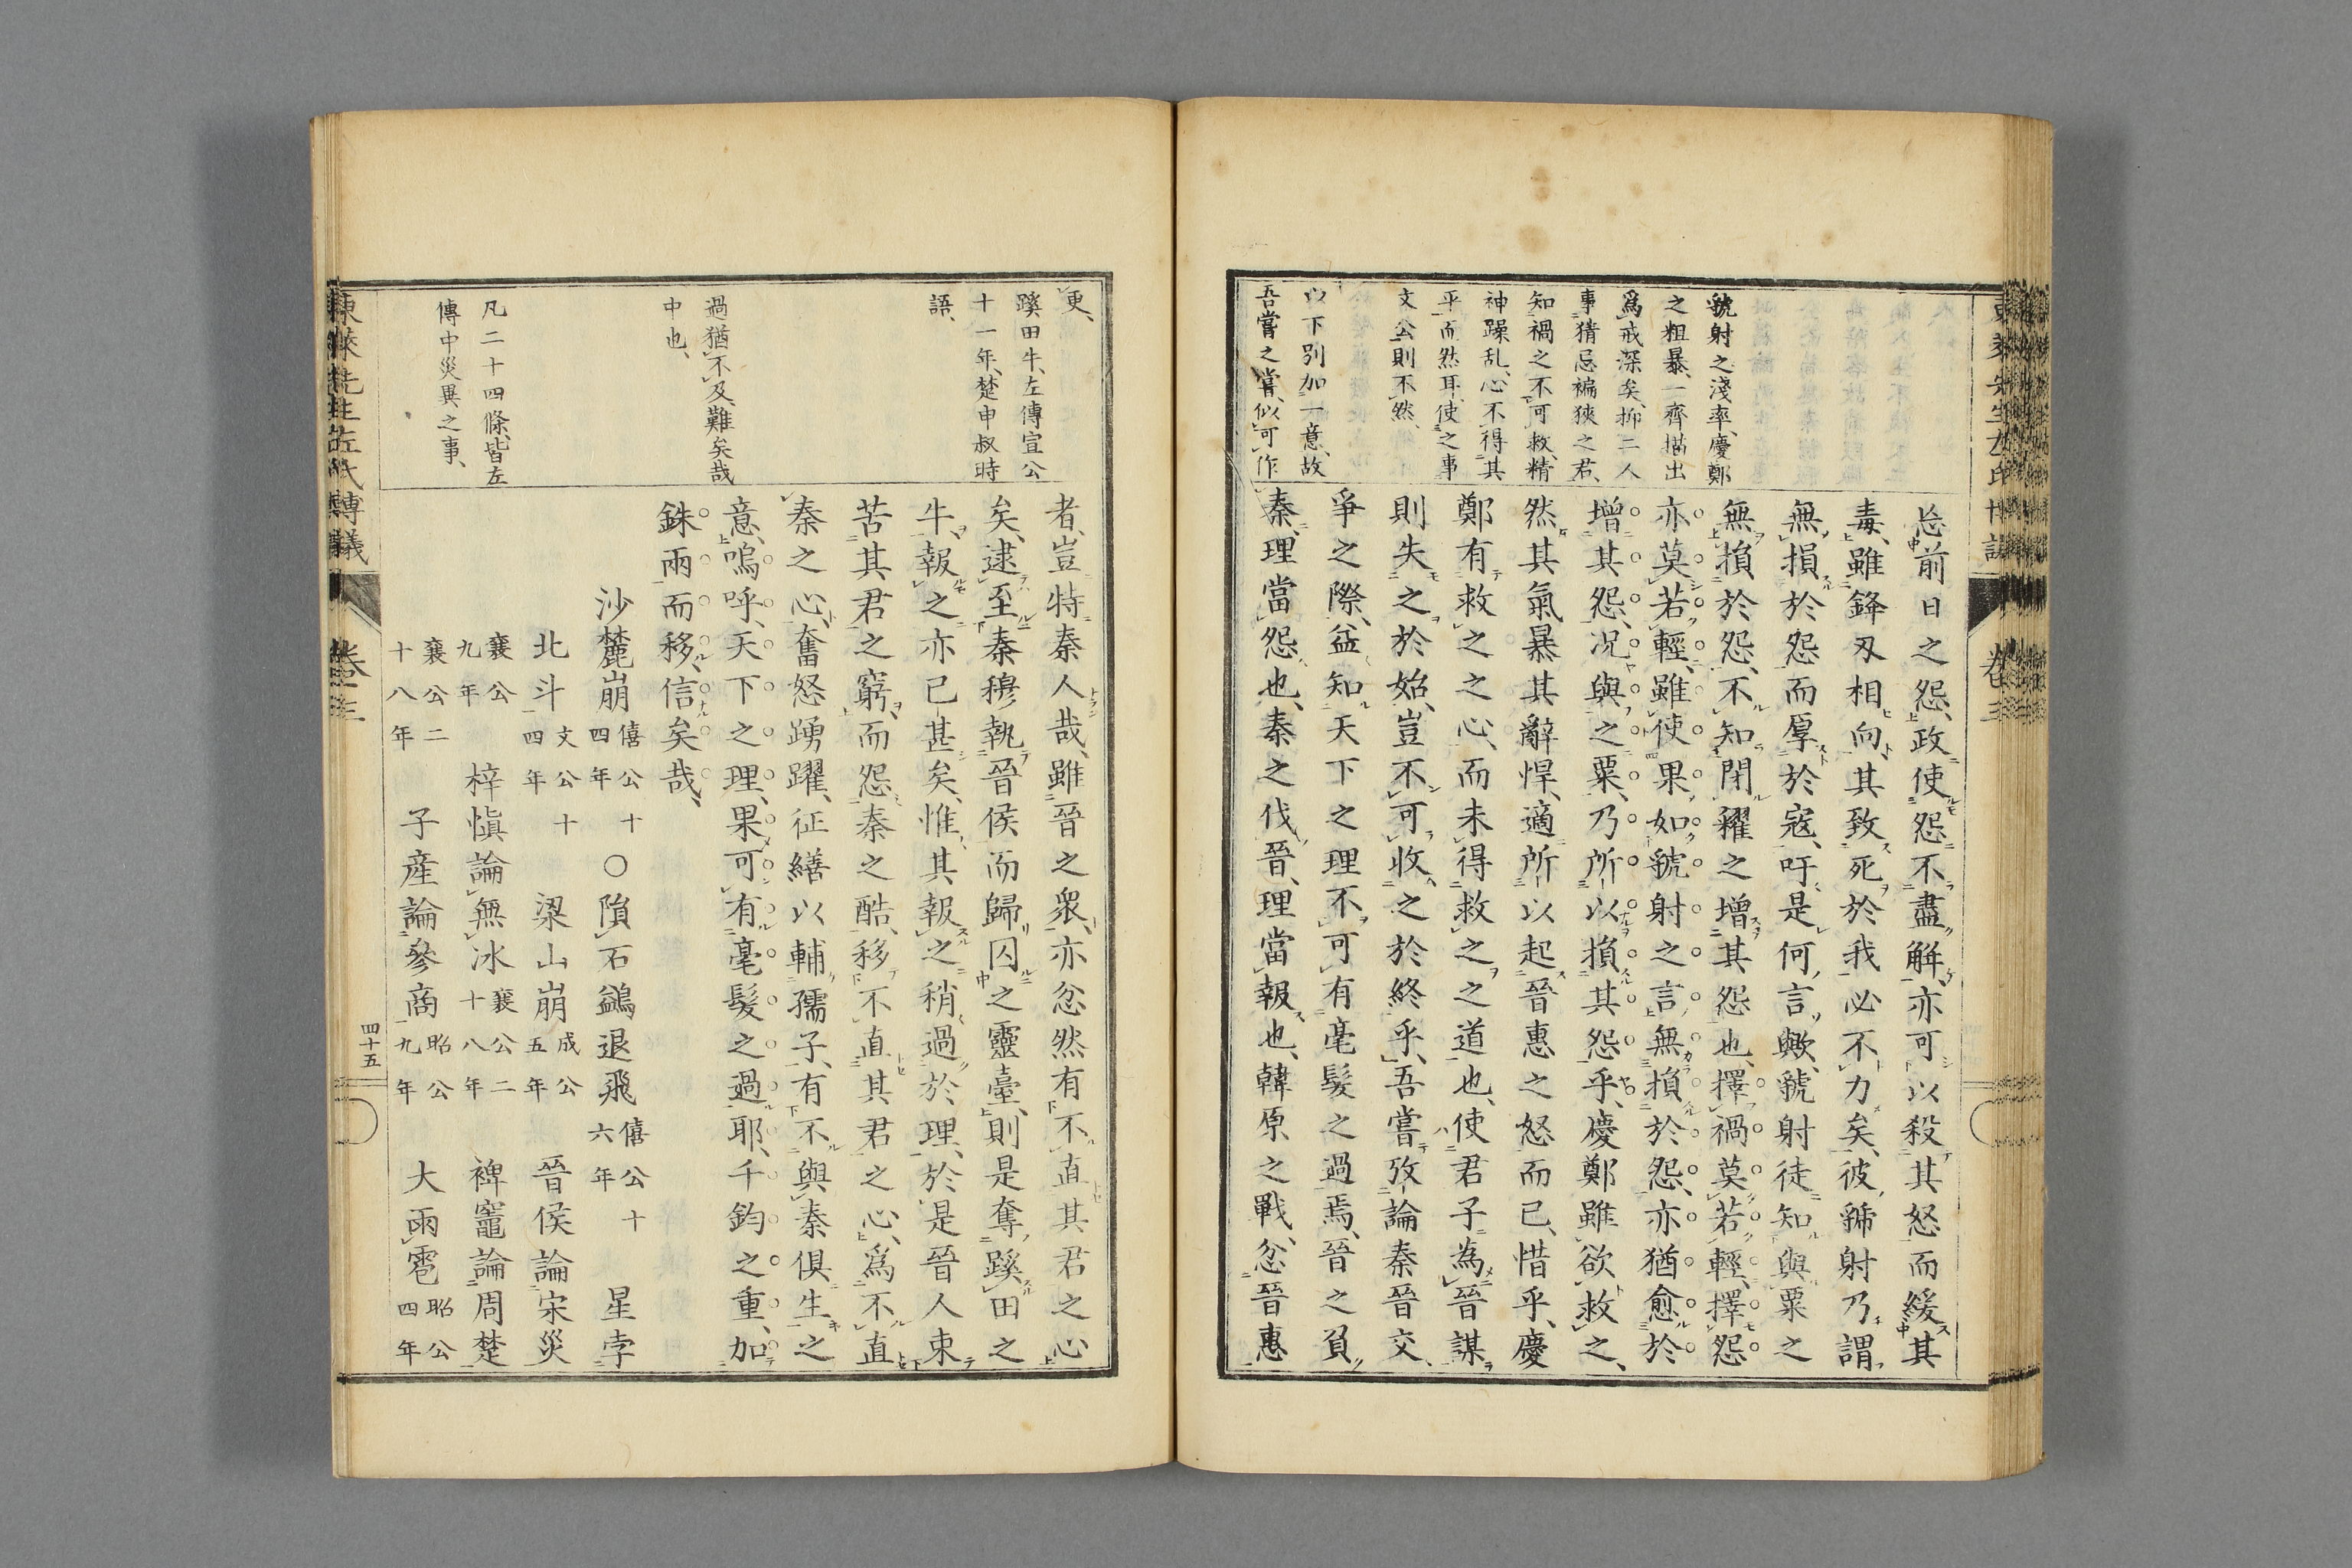 虢射之淺率、慶鄭
之粗暴、一齊描出
爲戒深矣、抑二人
事猜忌褊狹之君、
知禍之不可救、精
神躁乱、心不得其
平而然耳、使之事
文公則不然、
以下別加一意、故
吾嘗之嘗、似可作
忿前日之怨、政使怨不盡解、亦可以殺其怒而緩其
毒、雖鋒刃相向、其致死於我必不力矣、彼虢射乃謂
無損於怨而厚於寇、吁是何言歟、虢射徒知與粟之
無損於怨、不知閉糴之增其怨也、擇禍莫若輕、擇怨
亦莫若輕、雖使果如虢射之言、無損於怨、亦猶愈於
增其怨、况與之粟、乃所以損其怨乎、慶鄭雖欲救之、
然其氣暴其辭悍、適所以起晉惠之怒而已、惜乎、慶
鄭有救之之心、而未得救之之道也、使君子為晉謀
則失之於始、豈不可收之於終乎、吾嘗攷論秦晉交
爭之際、益知天下之理不可有毫髮之過焉、晉之負
秦、理當怨也、秦之伐晉、理當報也、韓原之戰、忿晉惠
更、
蹊田牛、左傳宣公
十一年、楚申叔時
語、
過猶不及、難矣哉
中也、
凡二十四條、皆左
傳中災異之事、
者、豈特秦人哉、雖晉之衆、亦忿然有不直其君之心
矣、逮至秦穆執晉侯而歸囚之靈臺、則是奪蹊田之
牛、報之亦已甚矣、惟其報之稍過於理、於是晉人束
苦其君之窮、而怨秦之酷、移不直其君之心、爲不直
秦之心、奮怒踴躍、征繕以輔孺子、有不與秦俱生之
意、嗚呼、天下之理、果可有毫髮之過耶、千鈞之重、加
銖兩而移、信矣哉、
沙麓崩 僖公十四年 ○隕石鷁退飛 僖公十六年 星孛
北斗 文公十四年 梁山崩 成公五年 晉侯論宋災
襄公九年 梓愼論無冰 襄公二十八年 裨竈論周楚
襄公二十八年 子産論參商 昭公九年 大雨雹 昭公四年
東萊先生左氏博議
卷三
四十五